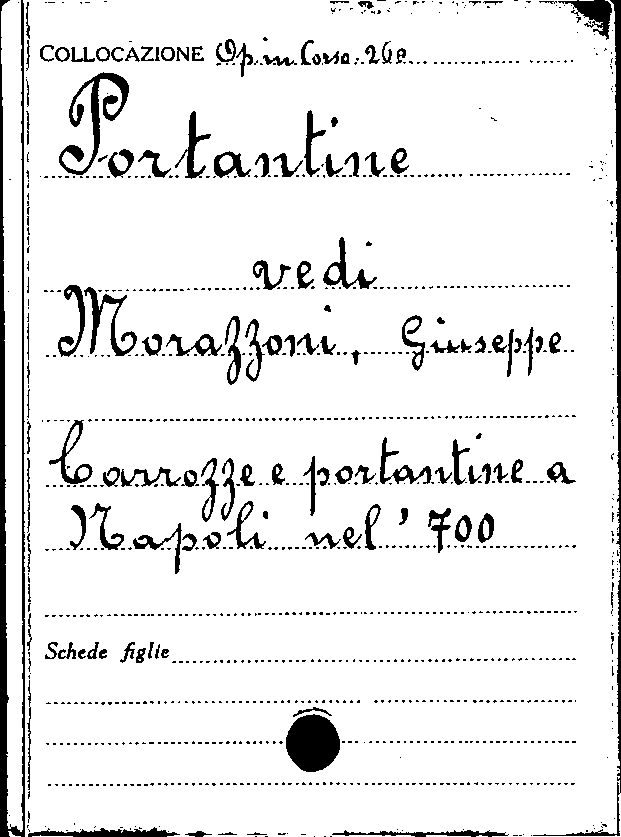 COLLOCAZIONE Op. in Corso. 260
Portantine
vedi
Morazzoni, Giuseppe
Carrozze e portantine a
Napoli nel '700
Schede figlie